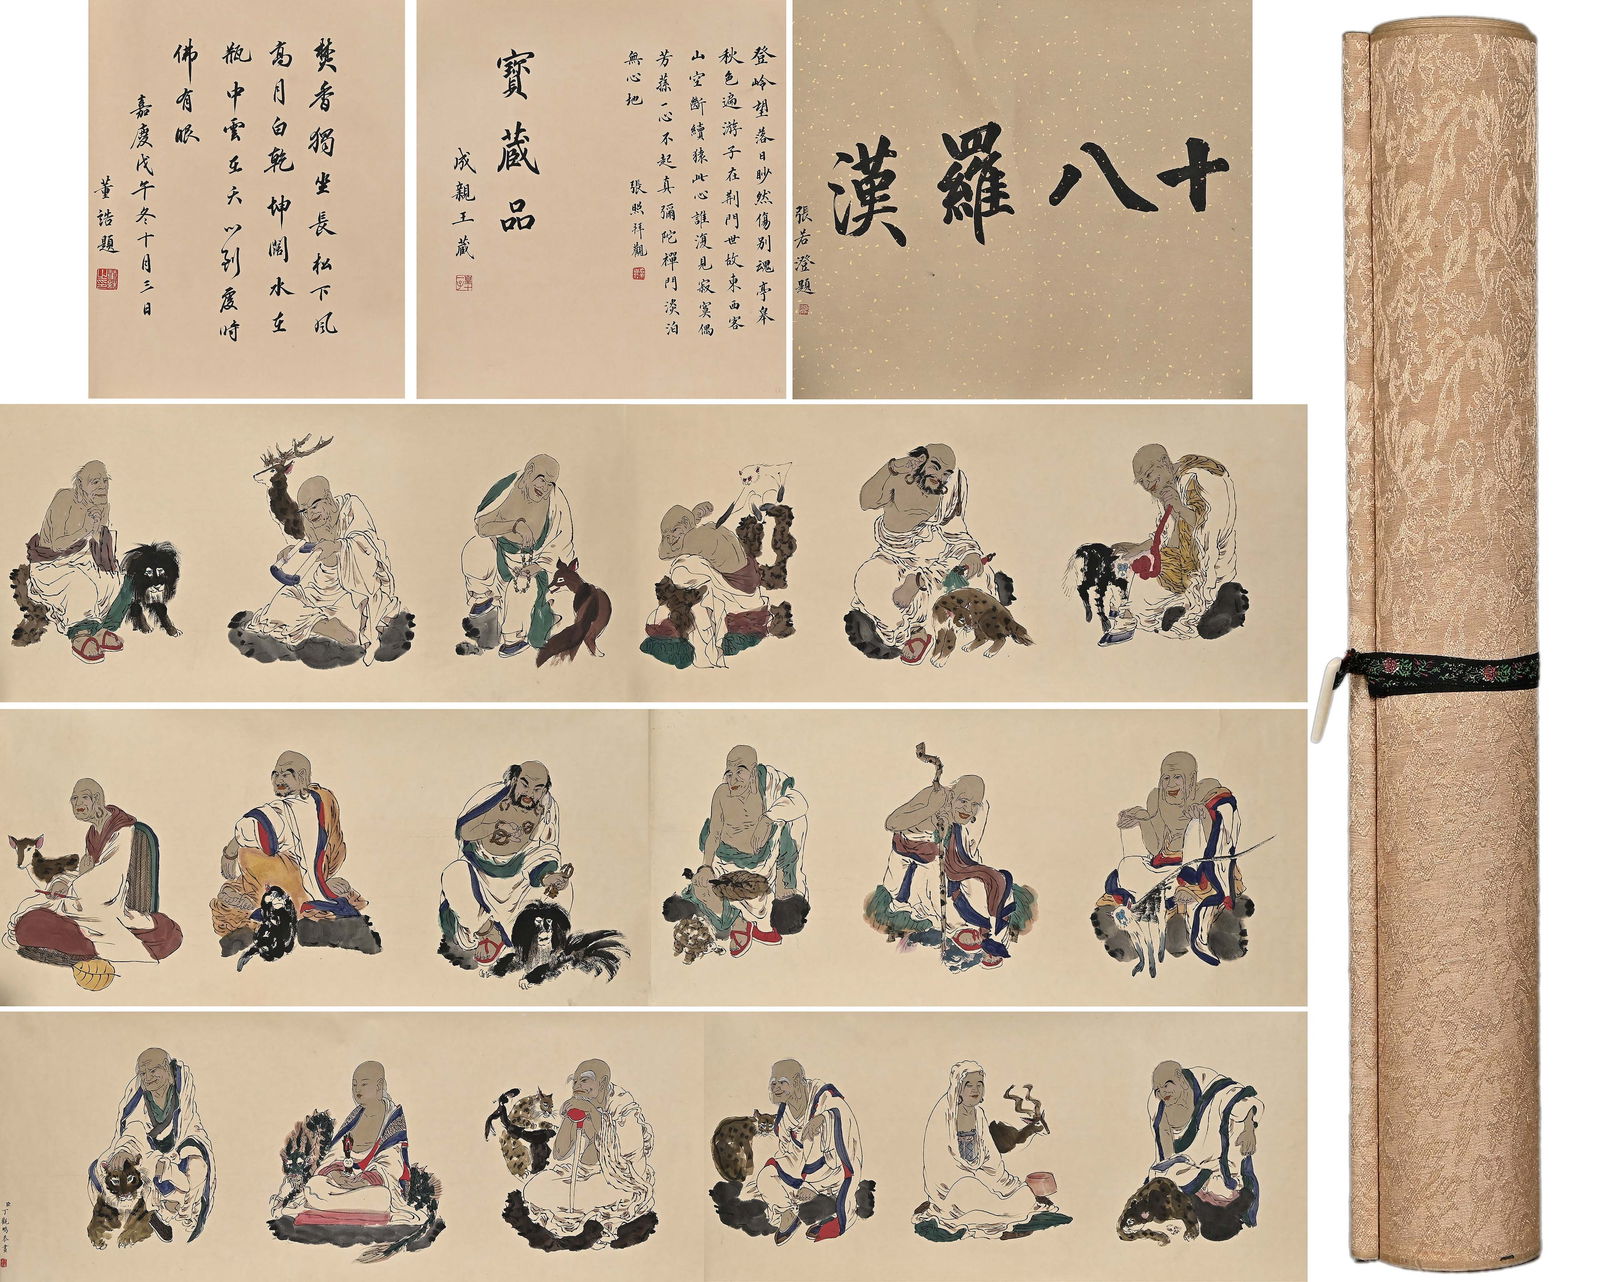 十八羅漢
張若澄題
登岭望落日眇然傷別魂亭皋
秋色遍游子在荆門世故東西客
山空斷續猿此心誰復見寂寞偶
芳蓀一心不起真彌陀禪門淡泊
無心地
張照拜觀
寶藏品
成親王藏
焚香獨坐長松下風
高月白乾坤闊水在
瓶中雲在天以到處時
佛有眼
嘉慶戊午冬十月三日
董誥題
臣丁觀鵬恭畫